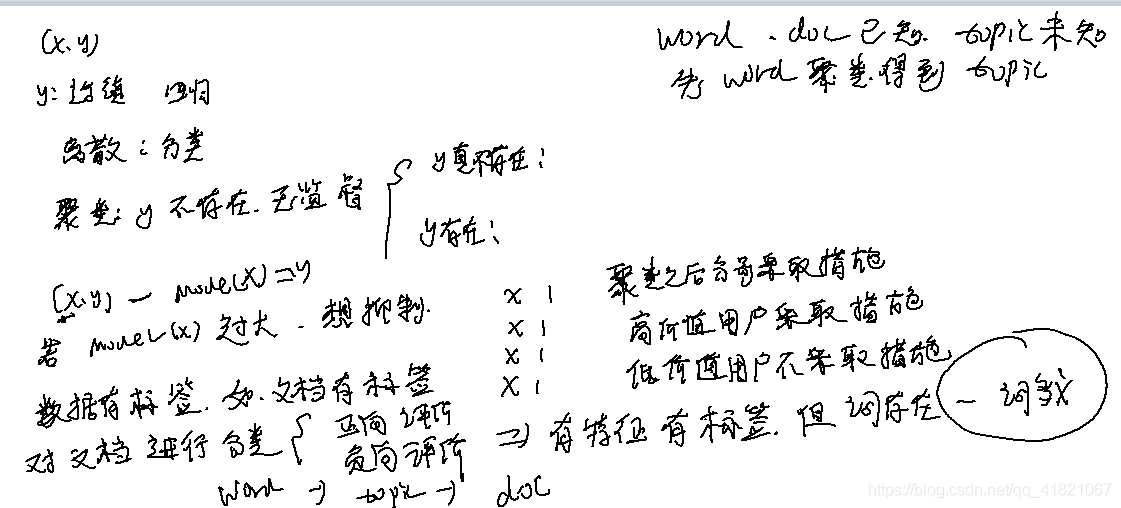 (x,y)
y: 连续 回归
离散：分类
聚类：y 不存在. 无监督
y真不存在：
y存在：
word、doc已知. topic未知
先 word 聚类.得到 topic
(x,y) — model(x) => y
若 model(x) 过大. 想抑制.
x 1
x 1
x 1
x 1
聚类之后分号采取措施
高价值用户采取措施
低价值用户不采取措施
数据有标签. 如.文档有标签
对文档进行分类
正向评价
负向评价
=> 有特征有标签. 但词存在 一词多义
word → topic → doc
https://blog.csdn.net/qq_41821067